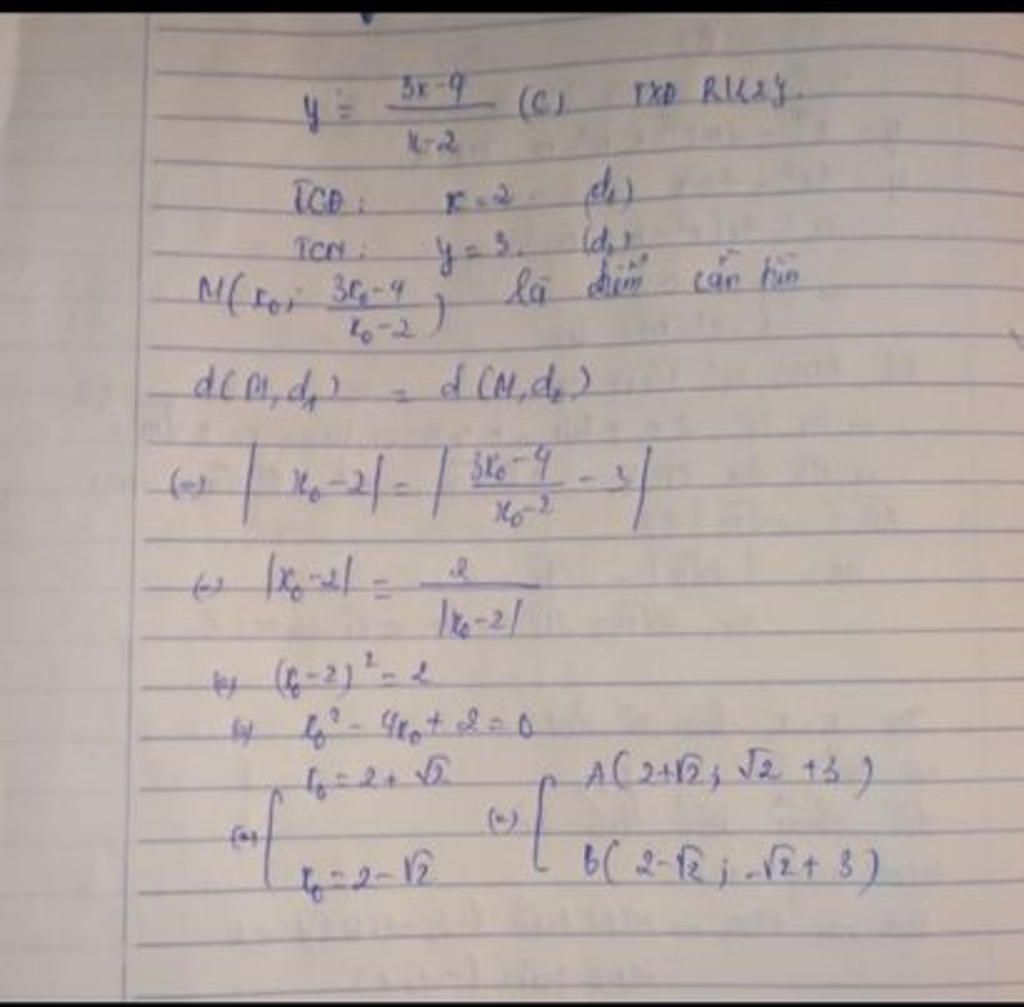 y = \frac{3x-4}{x-2} (C). TXĐ R\{2}.
TCĐ: x = 2. (d₁)
TCN: y = 3. (d₂)
M(x₀; \frac{3x₀-4}{x₀-2}) là điểm cần tìm
d(M, d₁) = d(M, d₂)
(=) |x₀-2| = |\frac{3x₀-4}{x₀-2} - 3|
(=) |x₀-2| = \frac{2}{|x₀-2|}
(=) (x₀-2)² = 2
(=) x₀² - 4x₀ + 2 = 0
(=) [ x₀ = 2 + √2 (=) [ A(2+√2; √2 + 3)
x₀ = 2 - √2 B(2-√2; -√2 + 3)